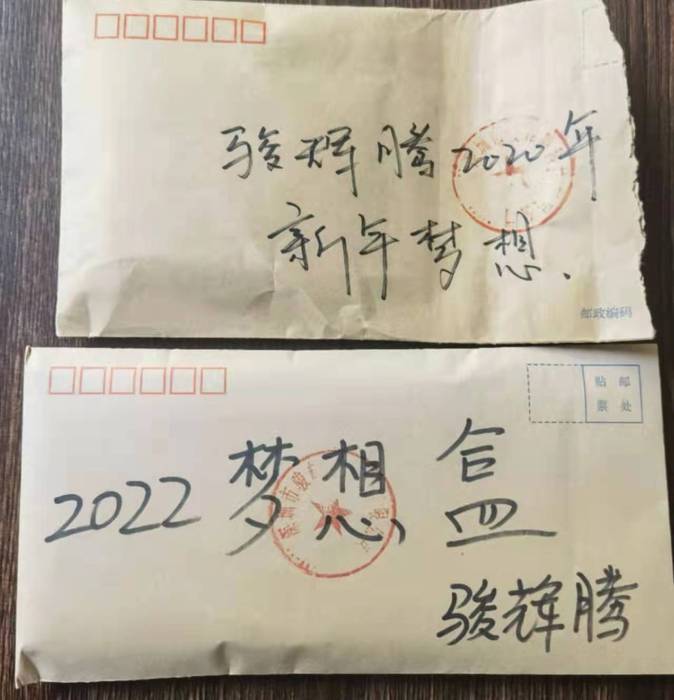 骏辉腾2020年
新年梦想.
邮政编码
贴 邮
票 处
2022 梦想盒
骏辉腾